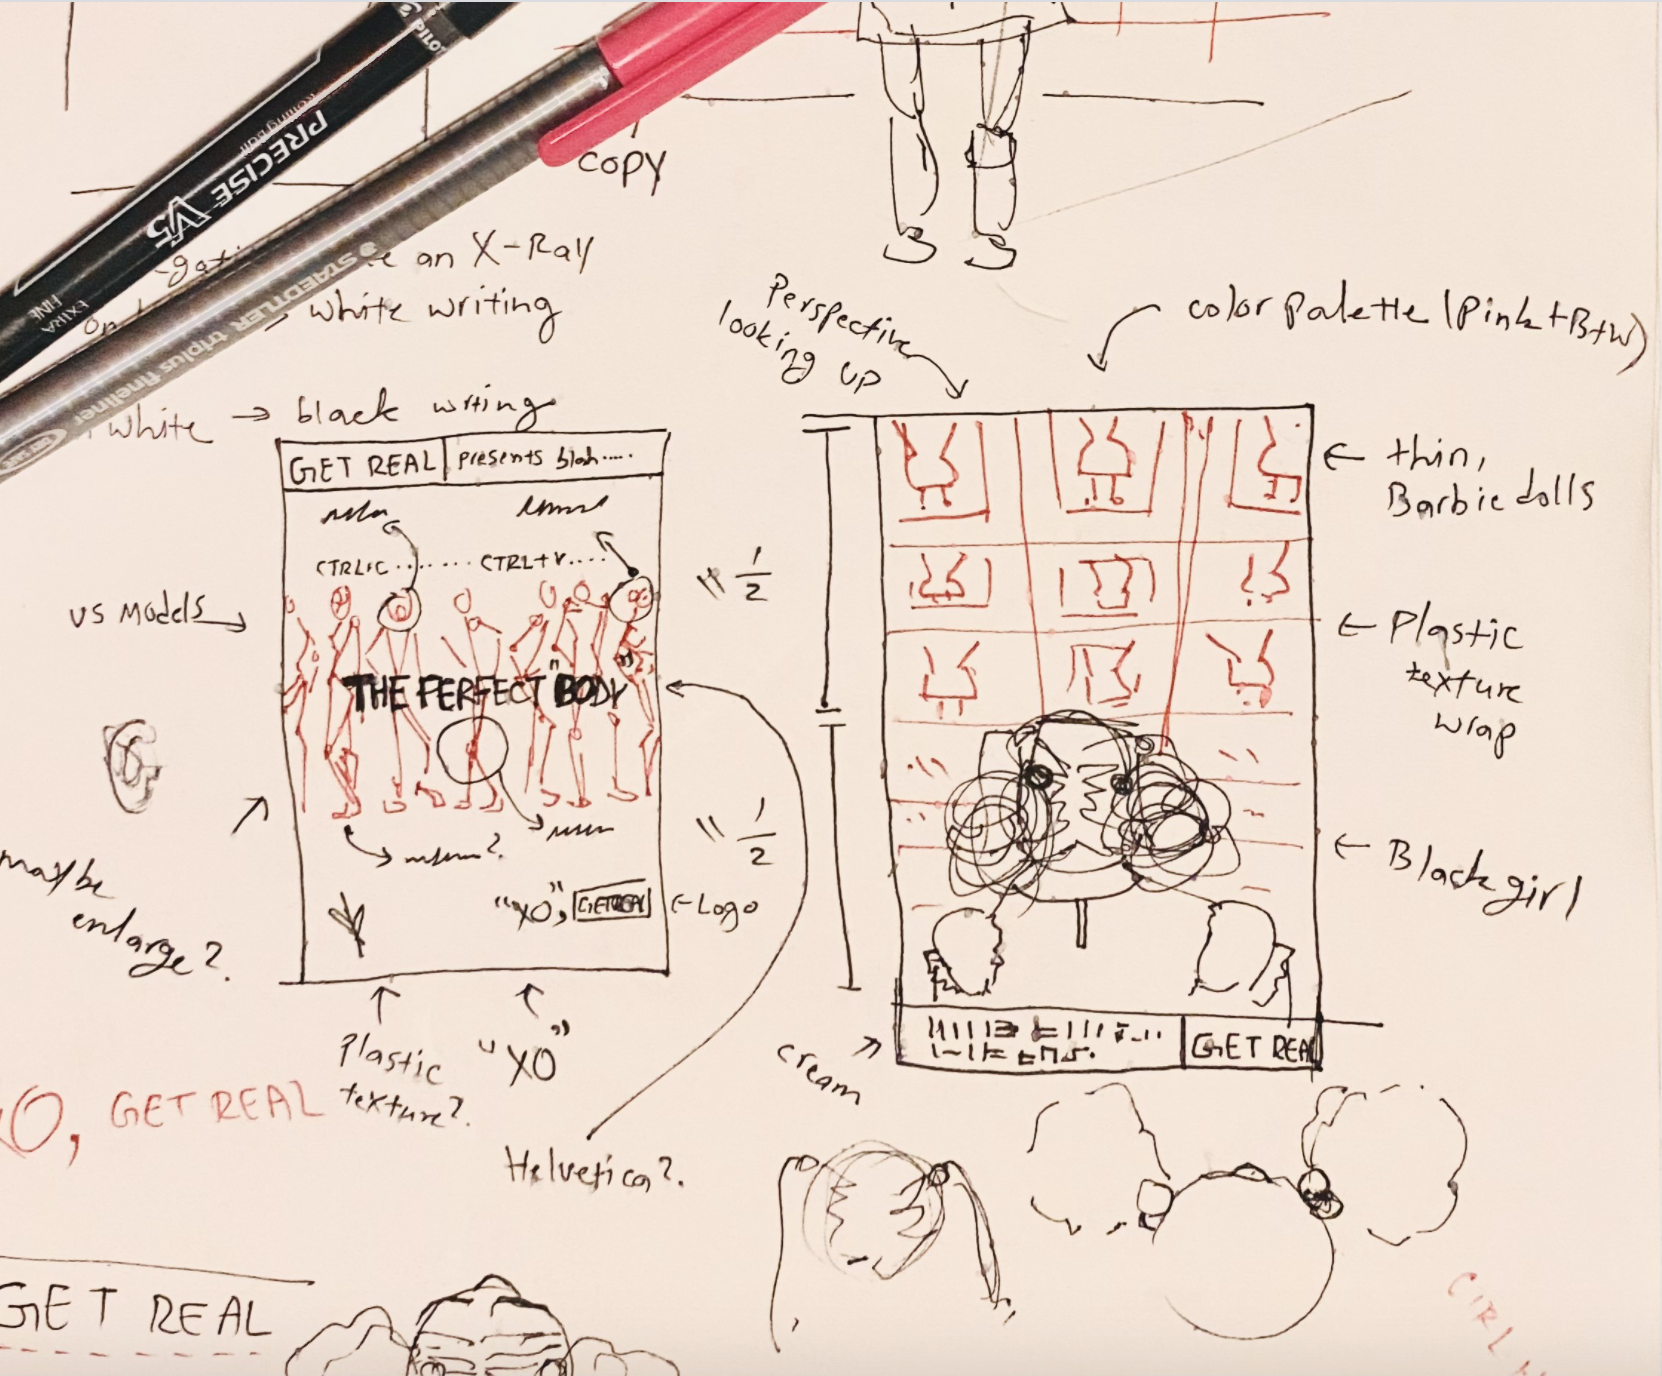 PILOT
PRECISE V5
Rolling Ball
EXTRA
FINE
STAEDTLER triplus fineliner
copy
an X-Ray
white writing
white → black writing
Perspective
looking up
color palette (Pink+B+W)
GET REAL
presents blah....
CTRL+C.......... CTRL+V....
US Models
THE PERFECT "BODY"
" 1/2
" 1/2
maybe
enlarge?.
"XO", GETREAL
← Logo
Plastic
texture?.
"XO"
Helvetica?.
← thin,
Barbie dolls
← Plastic
texture
wrap
← Black girl
cream
GET REAL
XO, GET REAL
GET REAL